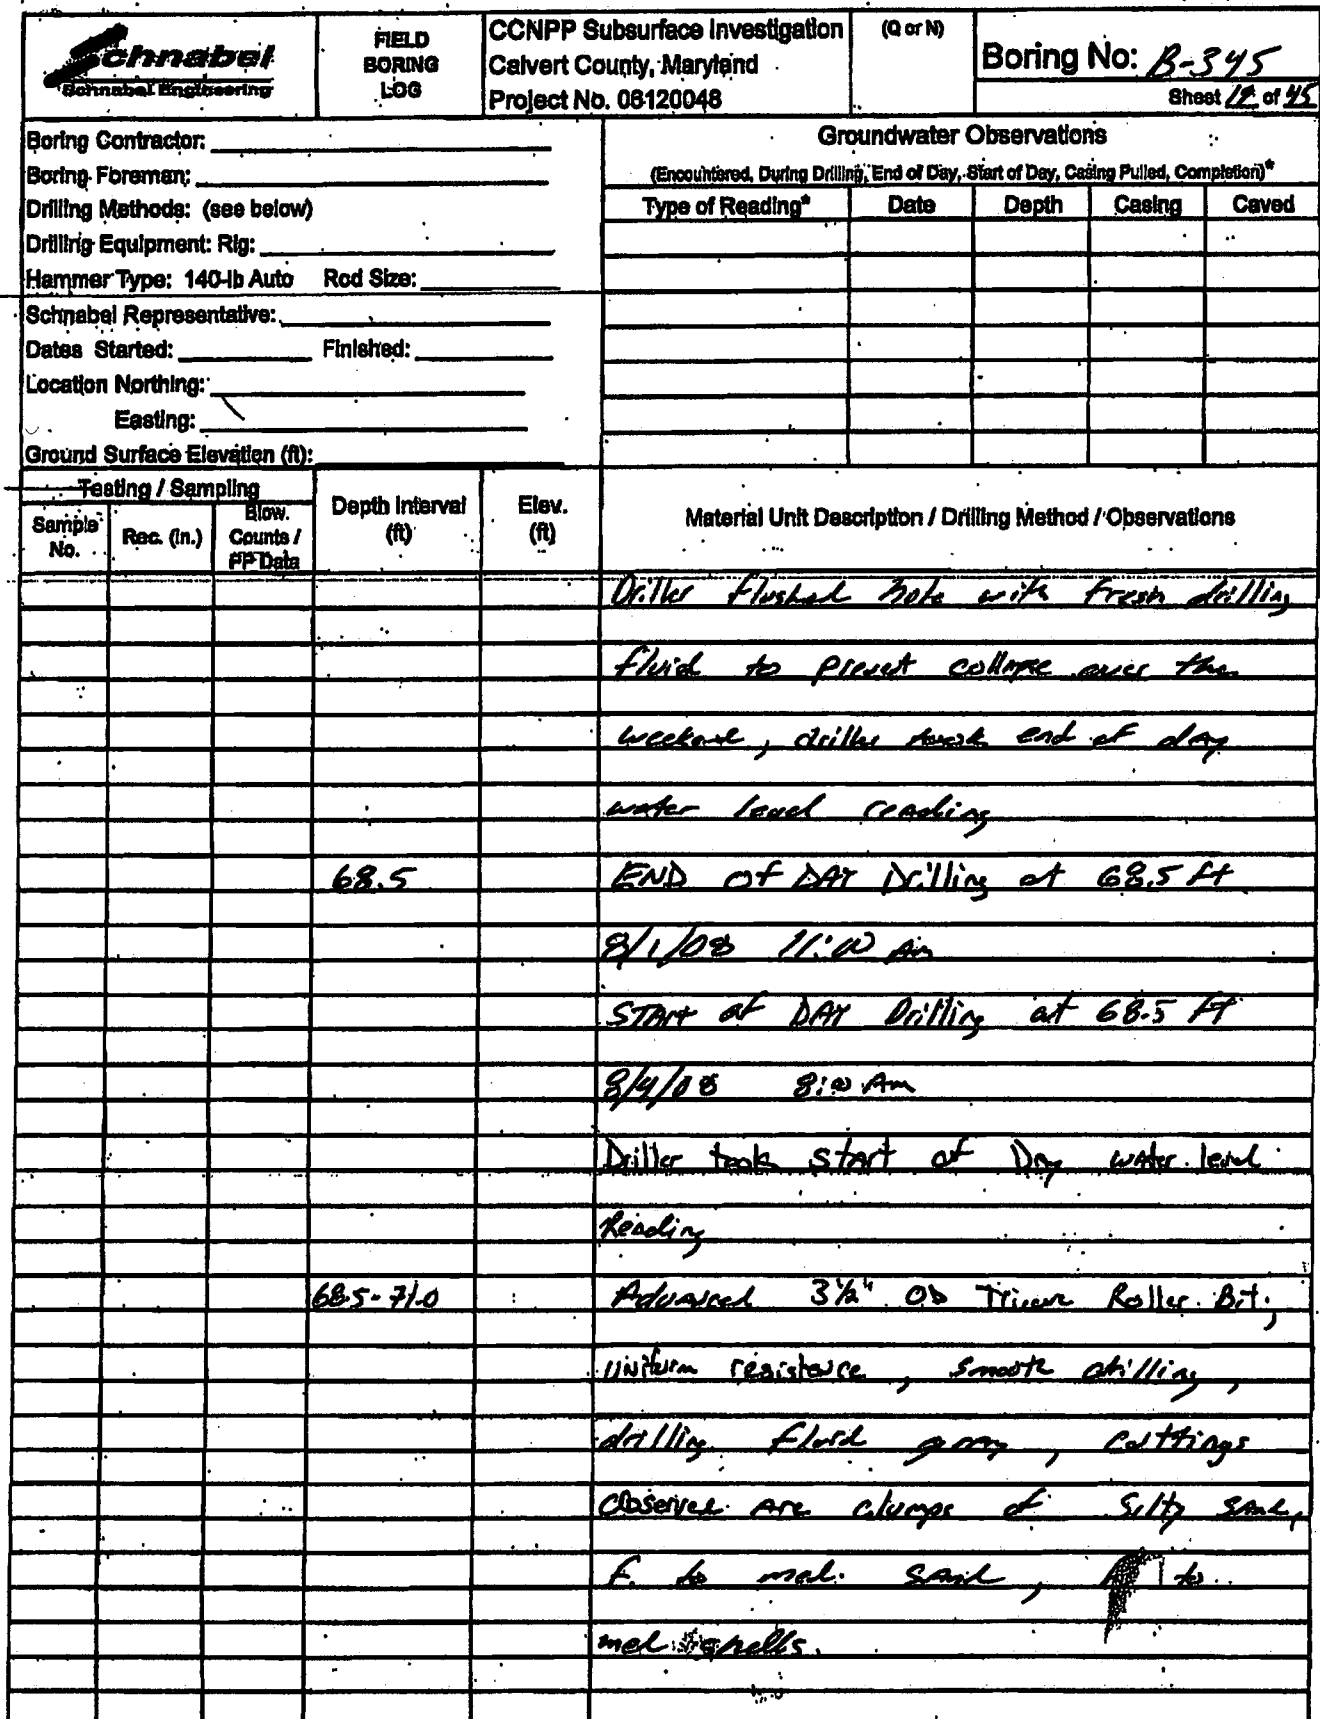 Schnabel
Schnabel Engineering
FIELD
BORING
LOG
CCNPP Subsurface Investigation
Calvert County, Maryland
Project No. 06120048
(Q or N)
Boring No: B-345
Sheet of 45
Boring Contractor:
Boring Foreman:
Drilling Methods: (see below)
Drilling Equipment: Rig:
Hammer Type: 140-lb Auto Rod Size:
Schnabel Representative:
Dates Started: Finished:
Location Northing:
Easting:
Ground Surface Elevation (ft):
Groundwater Observations
(Encountered, During Drilling, End of Day, Start of Day, Casing Pulled, Completion)*
Type of Reading* Date Depth Casing Caved
Testing / Sampling
Sample No. Rec. (in.) Blow Counts / PP Data
Depth Interval (ft)
Elev. (ft)
Material Unit Description / Drilling Method / Observations
Driller flushed hole with fresh drilling
fluid to prevent collapse over the
weekend, driller took end of day
water level reading
68.5 END of DAY Drilling at 68.5 ft
8/1/08 11:00 Am
START of DAY Drilling at 68.5 FT
8/4/08 8:00 Am
Driller took start of Day water level
Reading
68.5-71.0 Advanced 3 1/2" OD Tricone Roller Bit,
uniform resistance, smooth drilling,
drilling fluid gray, cuttings
observed are clumps of silty sand,
F. to med. sand, to
med shells.